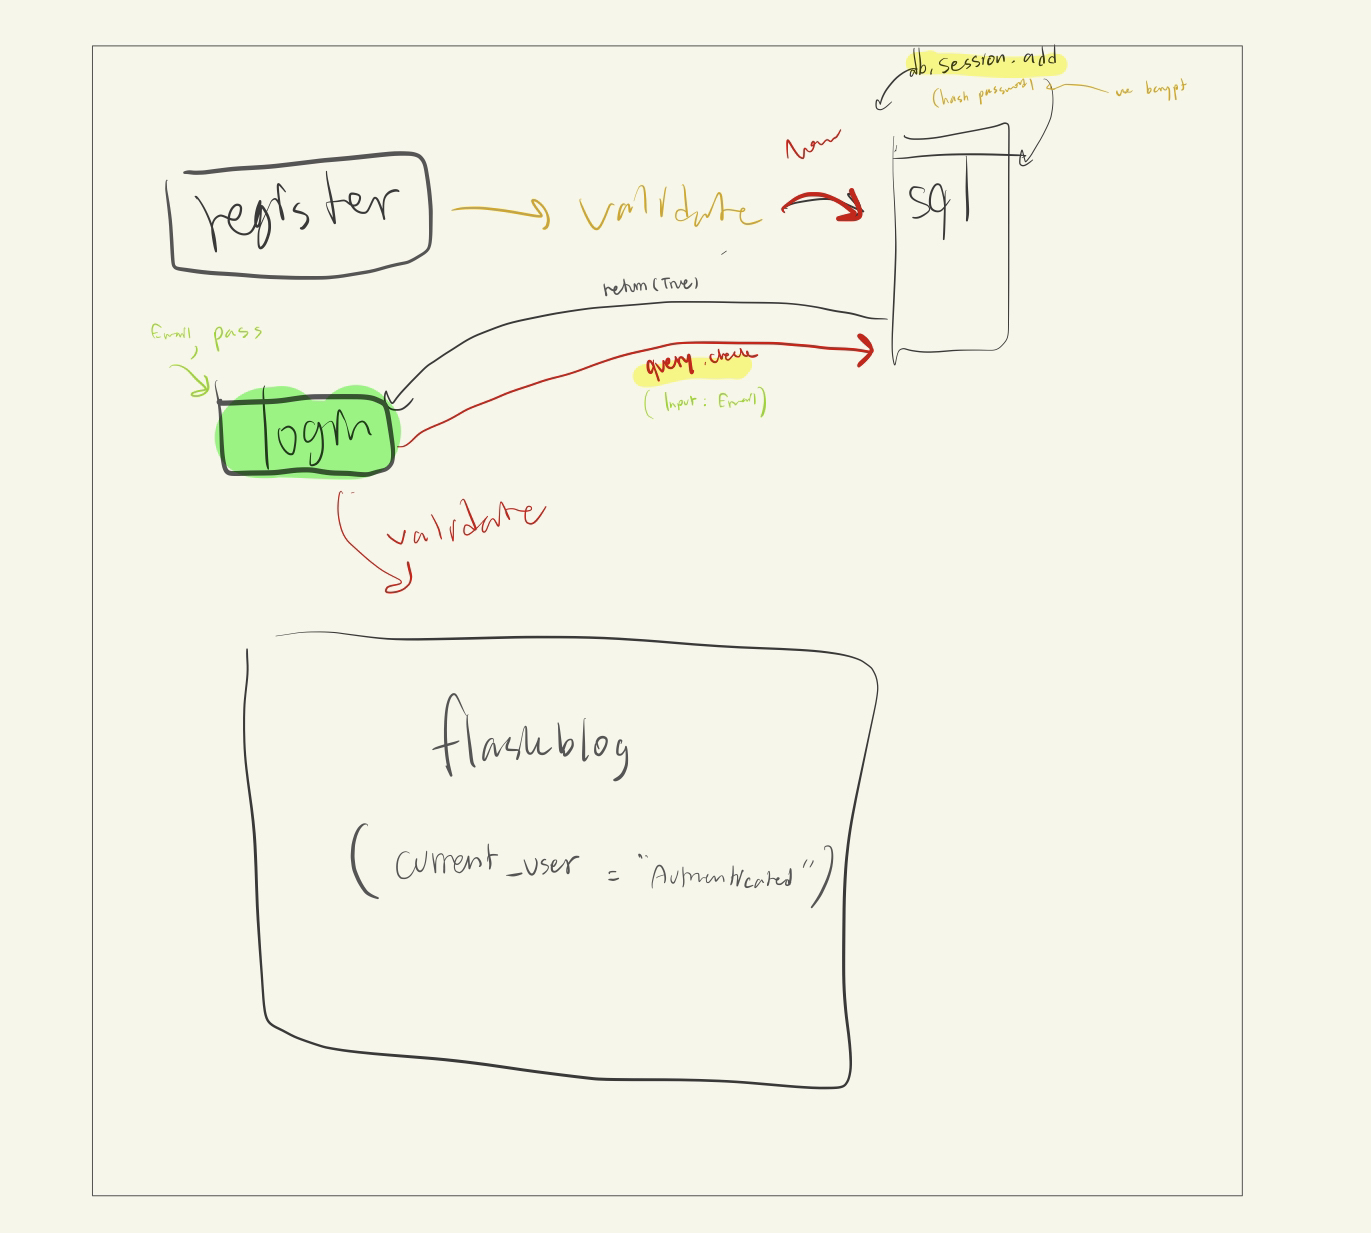 db.session.add
(hash password)
use bcrypt
New
register
validate
sql
return(True)
Email, pass
query.check
(Input: Email)
login
validate
flaskblog
(current_user = "Authenticated")